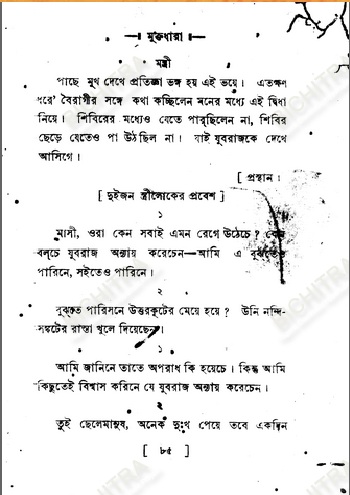 মুক্তধারা
মন্ত্রী
পাছে মুখ দেখে প্রতিজ্ঞা ভঙ্গ হয় এই ভয়ে। এতক্ষণ
ধরে' বৈরাগীর সঙ্গে কথা কচ্ছিলেন মনের মধ্যে এই দ্বিধা
নিয়ে। শিবিরের মধ্যেও যেতে পারছিলেন না, শিবির
ছেড়ে যেতেও পা উঠছিল না। যাই যুবরাজকে দেখে
আসিগে।
[ প্রস্থান।
[ দুইজন স্ত্রীলোকের প্রবেশ ]
১
মাসী, ওরা কেন সবাই এমন রেগে উঠেচে ? কেন
বলচে যুবরাজ অন্যায় করেচেন—আমি এ বুঝতেও
পারিনে, সইতেও পারিনে।
২
বুঝতে পারিসনে উত্তরকূটের মেয়ে হয়ে ? উনি নন্দি-
সঙ্কটের রাস্তা খুলে দিয়েছেন।
১
আমি জানিনে তাতে অপরাধ কি হয়েচে। কিন্তু আমি
কিছুতেই বিশ্বাস করিনে যে যুবরাজ অন্যায় করেচেন।
২
তুই ছেলেমানুষ, অনেক দুঃখ পেয়ে তবে একদিন
[ ৮৫ ]